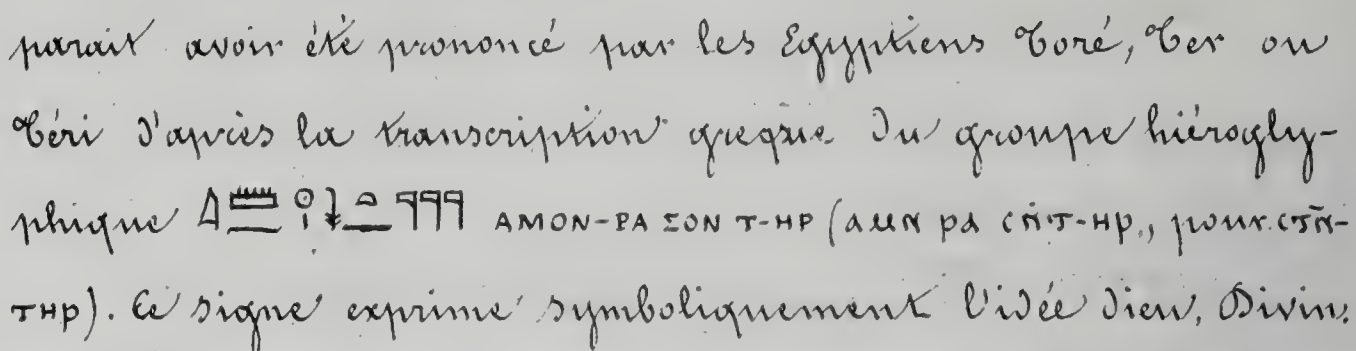 parait avoir été prononcé par les Egyptiens Toré, Ter ou
Téri d'après la transcription greque du groupe hiérogly-
phique 𓇋𓏠𓈖𓇳𓇓𓏏𓈖𓊹𓊹𓊹 ΑΜΟΝ-ΡΑ ΣΟΝ Τ-ΗΡ (ⲁⲙⲛ ⲣⲁ ⲥⲛ̄ⲧ-ⲏⲣ., pour ⲥⲧⲛ̄-
ⲧⲏⲣ). Ce signe exprime symboliquement l'idée dieu, Divin.